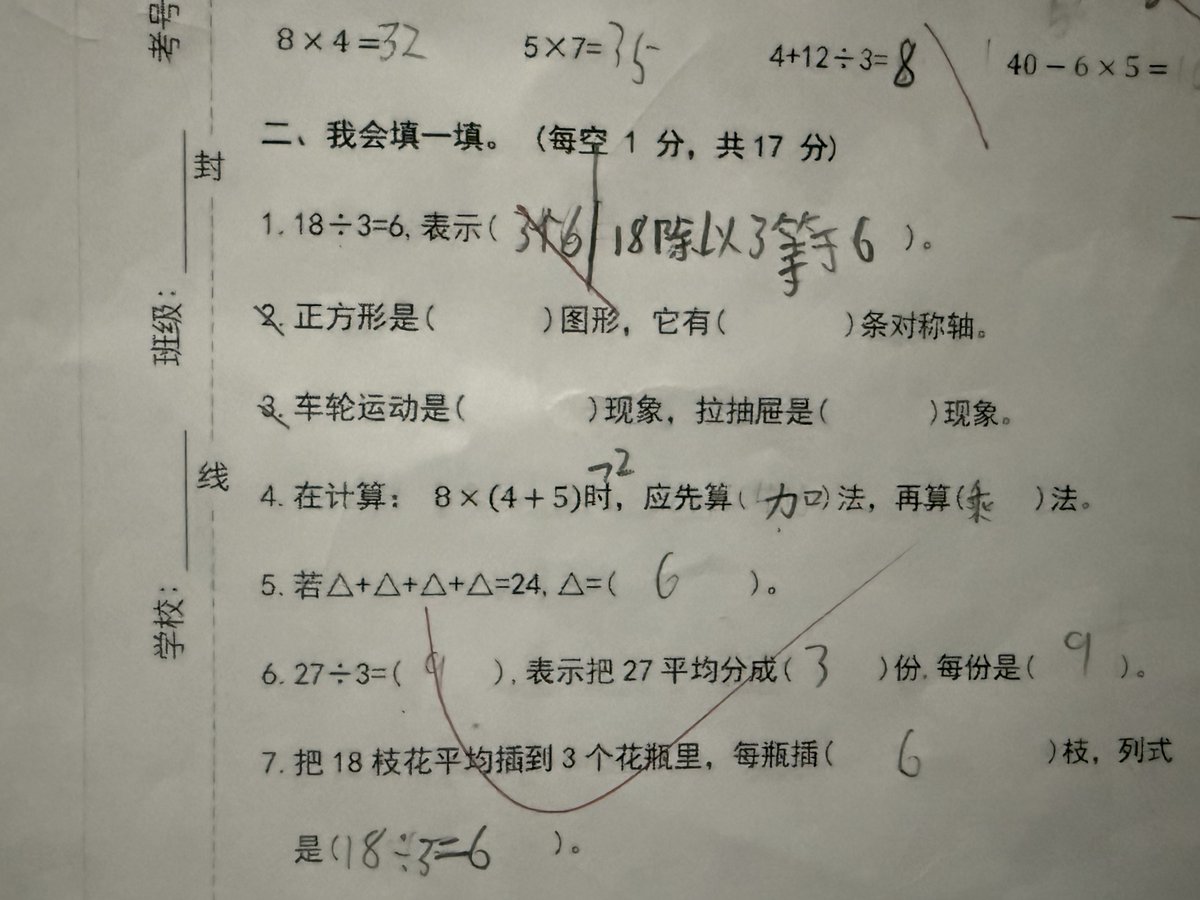 考号
8×4=32 5×7=35 4+12÷3=8 40－6×5=
二、我会填一填。（每空 1 分，共17 分）
封
1. 18÷3=6, 表示( 18除以3等于6 )。
班级：
2. 正方形是( )图形，它有( )条对称轴。
3. 车轮运动是( )现象，拉抽屉是( )现象。
线
4. 在计算： 8×(4+5)时，应先算( 加 )法，再算(乘 )法。
5. 若△+△+△+△=24, △=( 6 )。
学校：
6. 27÷3=( 9 ), 表示把 27 平均分成( 3 )份, 每份是( 9 )。
7. 把 18 枝花平均插到 3 个花瓶里，每瓶插( 6 )枝，列式
是(18÷3=6 )。